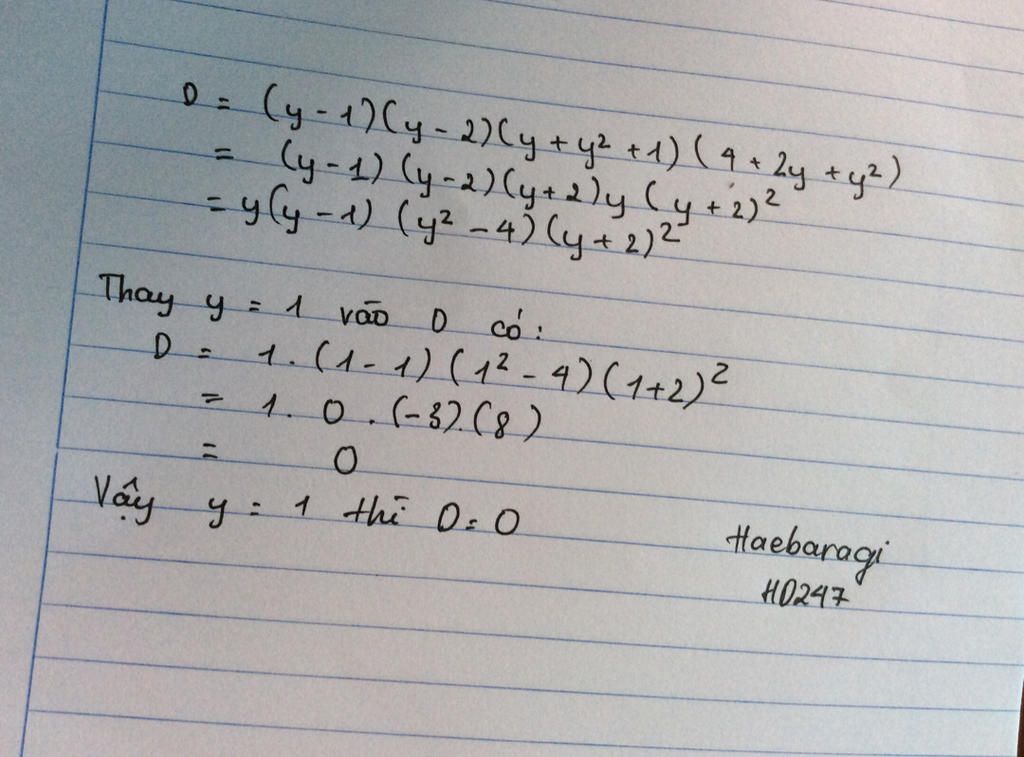 D = (y - 1)(y - 2)(y + y² + 1)(4 + 2y + y²)
= (y - 1)(y - 2)(y + 2)y(y + 2)²
= y(y - 1)(y² - 4)(y + 2)²
Thay y = 1 vào D có:
D = 1.(1 - 1)(1² - 4)(1+2)²
= 1. 0 .(-3).(8)
= 0
Vậy y = 1 thì D = 0
Haebaragi
HD247